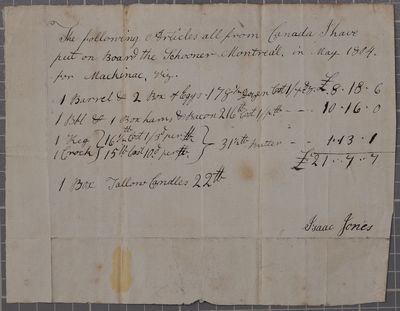 The following Articles all from Canada I have
put on Board the Schooner Montreal, in May 1804.
for Mackinac, Viz.
1 Barrel & 2 Box of Eggs 178 Dozen Cost £8.18.6
1 Bbl & 1 Box hams & Bacon 216 lb Cost 1/ pr lb - - 10.16.0
1 Keg } 16 lb Cost 1/3 pr lb
1 Crock } 15 lb Cost 10d pr lb } 31 lb Butter - - 1.13.1
£21.7.7
1 Box Tallow Candles 22 lb
Isaac Jones